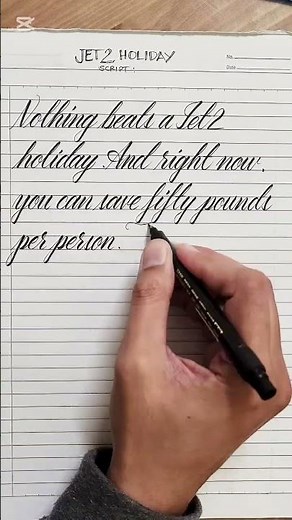 CapCut
JET2 HOLIDAY
SCRIPT:
No.
Date
Nothing beats a Jet2
holiday. And right now,
you can save fifty pounds
per person.